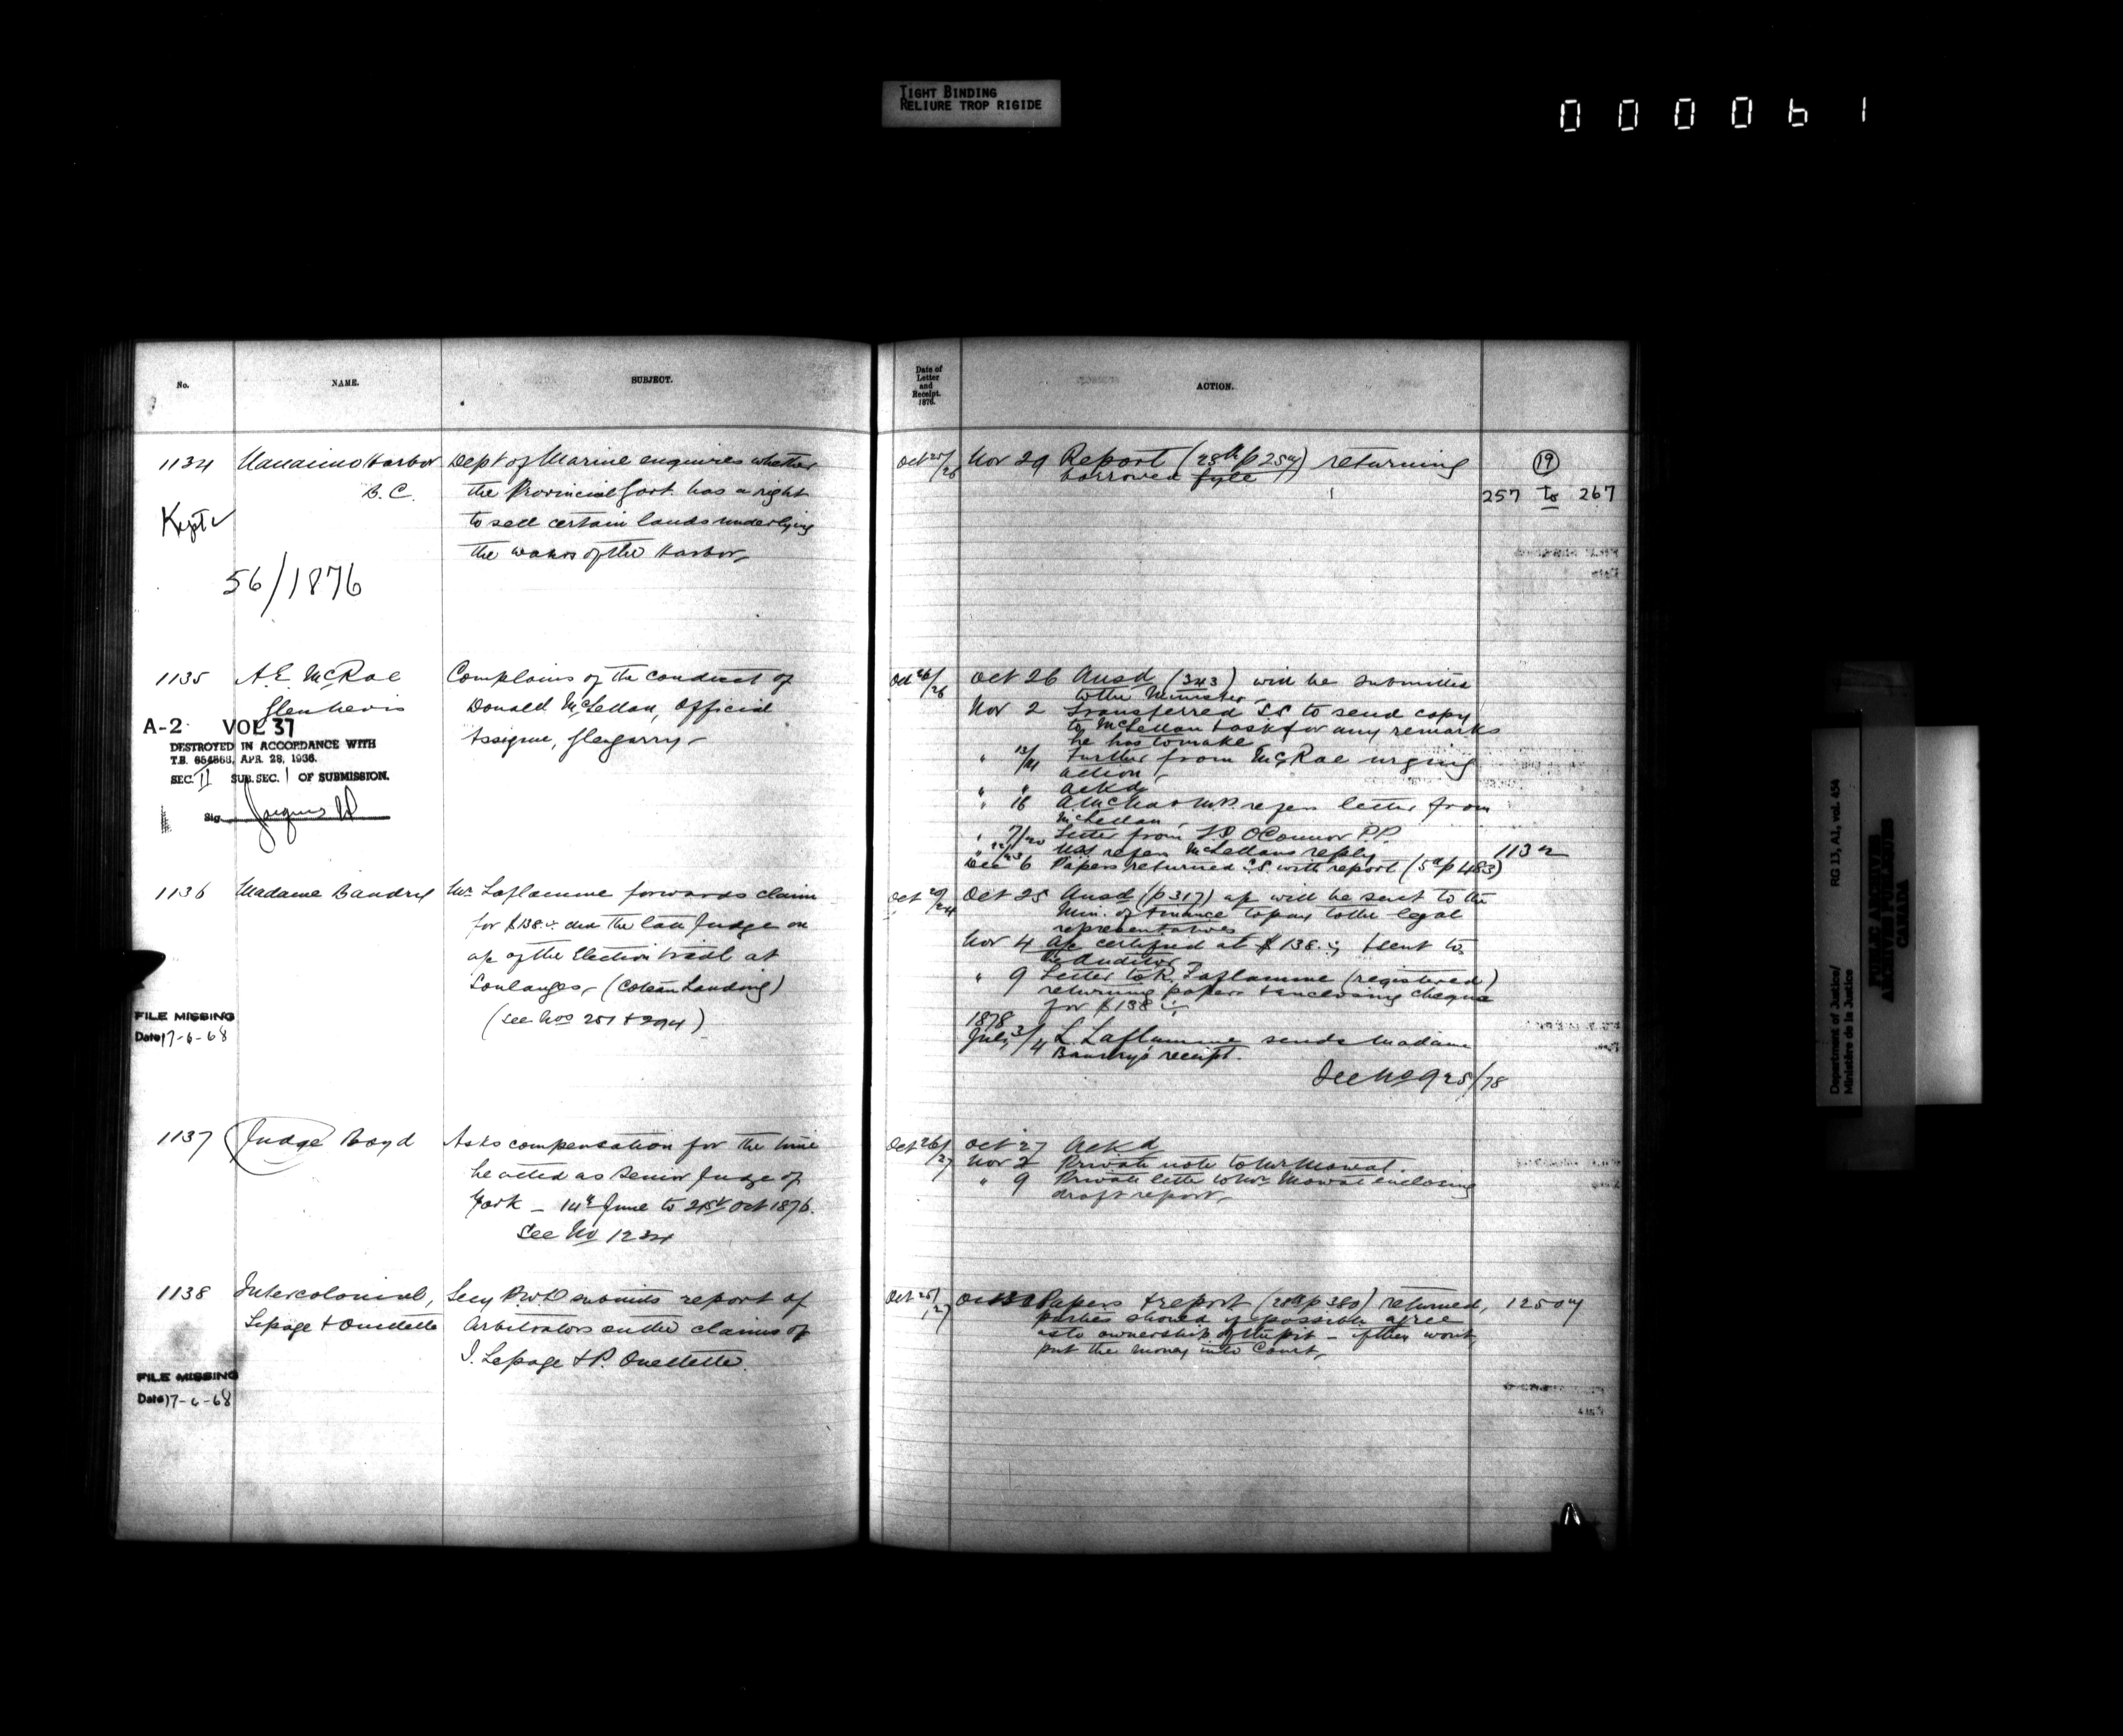 TIGHT BINDING
RELIURE TROP RIGIDE
000061
No.
NAME.
SUBJECT.
1134 Nanaimo Harbor
B.C.
Dept of Marine enquires whether
the Provincial Govt. has a right
to sell certain lands underlying
the waters of the Harbor,
Kept
56/1876
1135 A. E. McRae
Glennevis
Complains of the conduct of
Donald McLellan, Official
Assignee, Glengarry
A-2 VOL 37
DESTROYED IN ACCORDANCE WITH
T.B. 654868, APR. 28, 1936.
SEC. II SUB. SEC. 1 OF SUBMISSION.
Sig
1136 Madame Baudry
Mr Laflamme forwards claim
for $138. due the late Judge on
a/c of the Election trial at
Soulanges, (Coteau Landing)
(See Nos 251 & 294)
FILE MISSING
Date 17-6-68
1137 Judge Boyd
Asks compensation for the time
he acted as Senior Judge of
York – 14 June to 21st Oct 1876.
See No 1234
1138 Intercolonial,
Lepage & Ouellette
Secy P.W.D submits report of
Arbitrators on the claims of
J. Lepage & P. Ouellette.
FILE MISSING
Date 17-6-68
Date of
Letter
and
Receipt.
1876.
ACTION.
Oct 25/26 Nov 29 Report (28th p 254) returning
borrowed fyle
19
257 to 267
Oct 26/26 Oct 26 Ansd (343) will be submitted
to the Minister
Nov 2 Transferred SS to send copy
to McLellan & ask for any remarks
he has to make
" 13/14 Further from McRae urging
action
" " Ackd
" 16 refers letter from
McLellan
" 7/20 Letter from O'Connor P.P.
refers McLellans reply
1132
Dec 6 Papers returned SS with report (5th p 483)
Oct 20/24 Oct 25 Ansd (p 317) a/c will be sent to the
Min. of Finance to pay to the legal
representatives
Nov 4 a/c certified at $138. & sent to
the Auditor
" 9 Letter to R. Laflamme (registered)
returning papers & enclosing cheque
for $138
1878
July 3/4 L Laflamme sends Madame
Baudry's receipt.
See No 925/78
Oct 26/27 Oct 27 Ackd
Nov 2 Private note to Mr Mowat.
" 9 Private letter to Mr Mowat enclosing
draft report,
Oct 25/27 Papers & report (28th p 380) returned,
1250
parties should if possible agree
as to ownership of the pit – if they wont,
put the money into Court,
Department of Justice/
Ministère de la Justice
RG 13, A1, vol. 454
PUBLIC ARCHIVES
ARCHIVES PUBLIQUES
CANADA